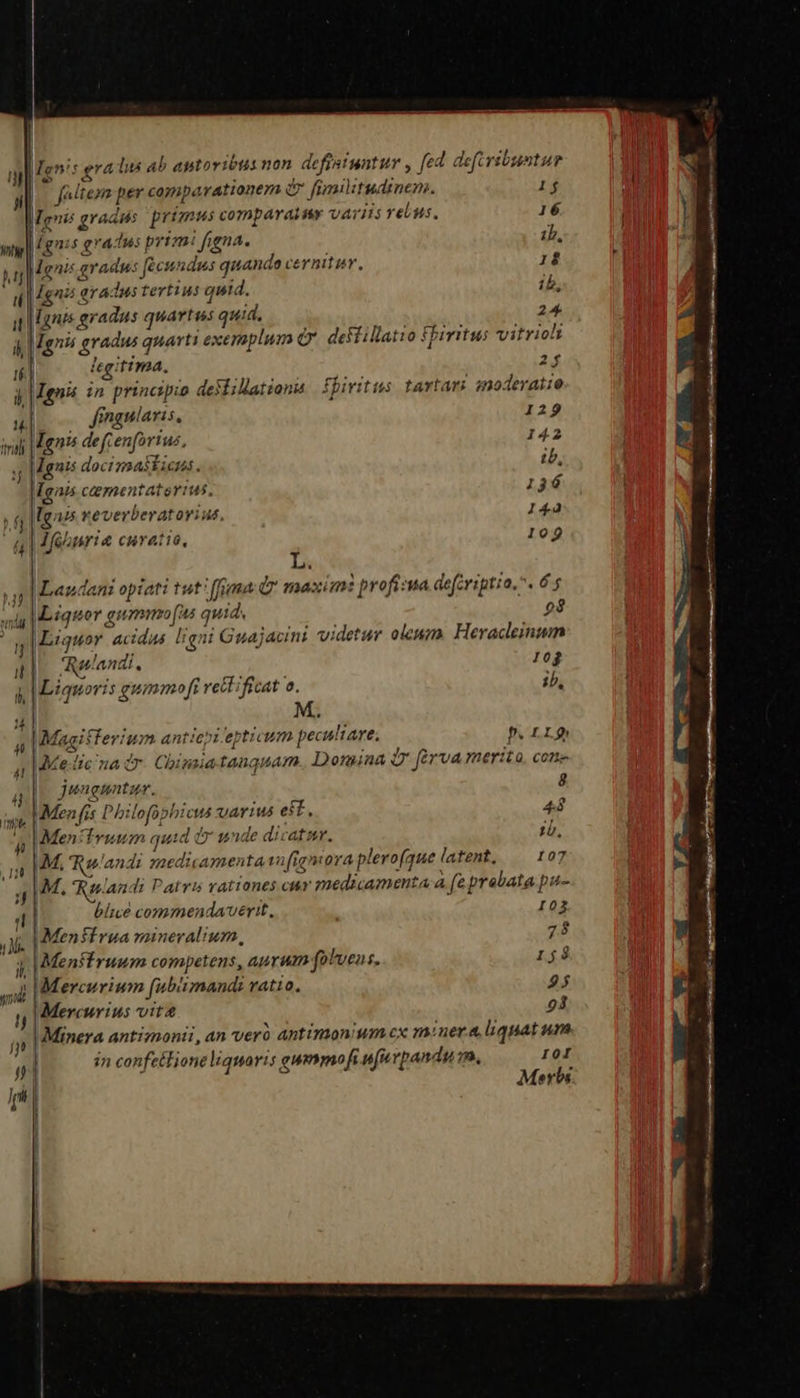 Ignis gradus ab autoribus non definiuntur, sed describuntur
saltem per comparationem & similitudinem. 15
Ignis gradus primus comparatur variis rebus. 16
Ignis gradus primi signa. ib.
Ignis gradus secundus quando cernitur. 18
Ignis gradus tertius quid. ib.
Ignis gradus quartus quid. 24
Ignis gradus quarti exemplum & destillatio spiritus vitrioli
legitima. 25
Ignis in principio destillationis spiritus tartari moderatio
singularis. 129
Ignis defensorius. 142
Ignis docimasticus. ib.
Ignis cæmentatorius. 136
Ignis reverberatorius. 142
Ischuriæ curatio. 109
L.
Laudani opiati tutissima & maximè proficua descriptio. 65
Liquor gummosus quid. 98
Liquor acidus ligni Guajacini videtur oleum Heracleinum
Rulandi. 103
Liquoris gummosi rectificatio. ib.
M.
Magisterium antiepilepticum peculiare. p. 119
Medicina & Chimia tanquam Domina & serva merito con-
junguntur. 8
Mensis Philosophicus varius est. 48
Menstruum quid & unde dicatur. ib.
M. Rulandi medicamenta insigniora plerosque latent. 107
M. Rulandi Patris rationes cur medicamenta à se probata pu-
blicè commendaverit. 103
Menstrua mineralium. 78
Menstruum competens, aurum solvens. 158
Mercurium sublimandi ratio. 95
Mercurius vitæ 98
Minera antimonii, an verò antimonium ex minera liquatum
in confectione liquoris gummosi usurpandum. 101
Morbi